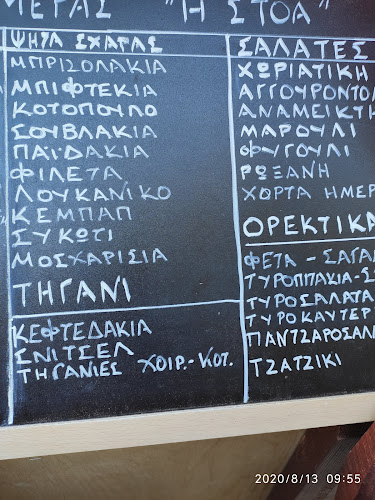 ΜΕΓΑΣ "Η ΣΤΟΑ"
ΨΗΤΑ ΣΧΑΡΑΣ
ΜΠΡΙΖΟΛΑΚΙΑ
ΜΠΙΦΤΕΚΙΑ
ΚΟΤΟΠΟΥΛΟ
ΣΟΥΒΛΑΚΙΑ
ΠΑΪΔΑΚΙΑ
ΦΙΛΕΤΑ
ΛΟΥΚΑΝΙΚΟ
ΚΕΜΠΑΠ
ΣΥΚΩΤΙ
ΜΟΣΧΑΡΙΣΙΑ
ΤΗΓΑΝΙ
ΚΕΦΤΕΔΑΚΙΑ
ΣΝΙΤΣΕΛ
ΤΗΓΑΝΙΕΣ ΧΟΙΡ.-ΚΟΤ.
ΣΑΛΑΤΕΣ
ΧΩΡΙΑΤΙΚΗ
ΑΓΓΟΥΡΟΝΤΟ
ΑΝΑΜΕΙΚΤ
ΜΑΡΟΥΛΙ
ΦΥΓΟΥΛΙ
ΡΩΞΑΝΗ
ΧΟΡΤΑ ΗΜΕΡ
ΟΡΕΚΤΙΚΑ
ΦΕΤΑ - ΣΑΓΑ
ΤΥΡΟΠΠΑΚΙΑ-Σ
ΤΥΡΟΣΑΛΑΤΑ
ΤΥΡΟΚΑΥΤΕΡ
ΠΑΝΤΖΑΡΟΣΑΛ
ΤΖΑΤΖΙΚΙ
2020/8/13 09:55